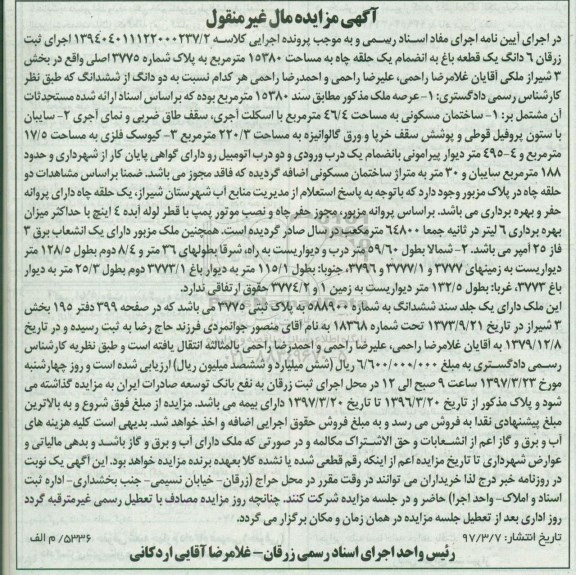 آگهی مزایده مال غیر منقول
در اجرای آیین نامه اجرای مفاد اسناد رسمی و به موجب پرونده اجرایی کلاسه ۱۳۹۴۰۴۰۱۱۱۲۲۰۰۰۲۳۷/۲ اجرای ثبت
زرقان ۶ دانگ یک قطعه باغ به انضمام یک حلقه چاه به مساحت ۱۵۳۸۰ مترمربع به پلاک شماره ۳۷۷۵ اصلی واقع در بخش
۳ شیراز ملکی آقایان غلامرضا راحمی، علیرضا راحمی و احمدرضا راحمی هر کدام نسبت به دو دانگ از ششدانگ که طبق نظر
کارشناس رسمی دادگستری: ۱- عرصه ملک مذکور مطابق سند ۱۵۳۸۰ مترمربع بوده که براساس اسناد ارائه شده مستحدثات
آن مشتمل بر: ۱- ساختمان مسکونی به مساحت ۴۶/۴ مترمربع با اسکلت آجری، سقف طاق ضربی و نمای آجری ۲- سایبان
با ستون پروفیل قوطی و پوشش سقف خرپا و ورق گالوانیزه به مساحت ۲۲۰/۳ مترمربع ۳- کیوسک فلزی به مساحت ۱۷/۵
مترمربع و ۴- ۴۹۵ متر دیوار پیرامونی بانضمام یک درب ورودی و دو درب اتومبیل رو دارای گواهی پایان کار از شهرداری و حدود
۱۸۸ مترمربع سایبان و ۳۰ متر به متراژ ساختمان مسکونی اضافه گردیده که فاقد مجوز می باشد. ضمنا براساس مشاهدات دو
حلقه چاه در پلاک مزبور وجود دارد که باتوجه به پاسخ استعلام از مدیریت منابع آب شهرستان شیراز، یک حلقه چاه دارای پروانه
حفر و بهره برداری می باشد. براساس پروانه مزبور، مجوز حفر چاه و نصب موتور پمپ با قطر لوله آبده ۴ اینچ با حداکثر میزان
بهره برداری ۶ لیتر در ثانیه جمعا ۶۴۸۰۰ مترمکعب در سال صادر گردیده است. همچنین ملک مزبور دارای یک انشعاب برق ۳
فاز ۲۵ آمپر می باشد. ۲- شمالا بطول ۵۹/۶۰ متر درب و دیواریست به راه، شرقا بطولهای ۳۶ متر و ۸/۴ دوم بطول ۱۲۸/۵ متر
دیواریست به زمینهای ۳۷۷۷ و ۳۷۷۷/۱ و ۳۷۹۶، جنوبا: بطول ۱۱۵/۱ متر به دیوار باغ ۳۷۷۳/۱ دوم بطول ۲۵/۳ متر به دیوار
باغ ۳۷۷۳، غربا: بطول ۱۳۲/۵ متر دیواریست به زمین ۱ و ۳۷۷۴/۲ حقوق ارتفاقی ندارد.
این ملک دارای یک جلد سند ششدانگ به شماره ۰۵۸۸۹۰۰ به پلاک ثبتی ۳۷۷۵ می باشد که در صفحه ۳۹۹ دفتر ۱۹۵ بخش
۳ شیراز در تاریخ ۱۳۷۳/۹/۲۱ تحت شماره ۱۸۳۶۸ به نام آقای منصور جوانمردی فرزند حاج رضا به ثبت رسیده و در تاریخ
۱۳۷۹/۱۲/۸ به آقایان غلامرضا راحمی، علیرضا راحمی و احمدرضا راحمی بالمثالثه انتقال یافته است و طبق نظریه کارشناس
رسمی دادگستری به مبلغ ۶/۶۰۰/۰۰۰/۰۰۰ ریال (شش میلیارد و ششصد میلیون ریال) ارزیابی شده است و روز چهارشنبه
مورخ ۱۳۹۷/۳/۲۳ ساعت ۹ صبح الی ۱۲ در محل اجرای ثبت زرقان به نفع بانک توسعه صادرات ایران به مزایده گذاشته می
شود و پلاک مذکور از تاریخ ۱۳۹۶/۳/۲۰ تا تاریخ ۱۳۹۷/۳/۲۰ دارای بیمه می باشد. مزایده از مبلغ فوق شروع و به بالاترین
مبلغ پیشنهادی نقدا به فروش می رسد و به مبلغ فروش حقوق اجرایی اضافه و اخذ خواهد شد. بدیهی است کلیه هزینه های
آب و برق و گاز اعم از انشعابات و حق الاشتراک مکالمه و در صورتی که ملک دارای آب و برق و گاز باشد و بدهی مالیاتی و
عوارض شهرداری تا تاریخ مزایده اعم از اینکه رقم قطعی شده یا نشده کلا بعهده برنده مزایده خواهد بود. این آگهی یک نوبت
در روزنامه خبر درج لذا خریداران می توانند در وقت مقرر در محل حراج (زرقان- خیابان نسیمی- جنب بخشداری- اداره ثبت
اسناد و املاک- واحد اجرا) حاضر و در جلسه مزایده شرکت کنند. چنانچه روز مزایده مصادف با تعطیل رسمی غیرمترقبه گردد
روز اداری بعد از تعطیل جلسه مزایده در همان زمان و مکان برگزار می گردد.
تاریخ انتشار: ۹۷/۳/۷
۵۳۳۶/ م الف
رئیس واحد اجرای اسناد رسمی زرقان- غلامرضا آقایی اردکانی